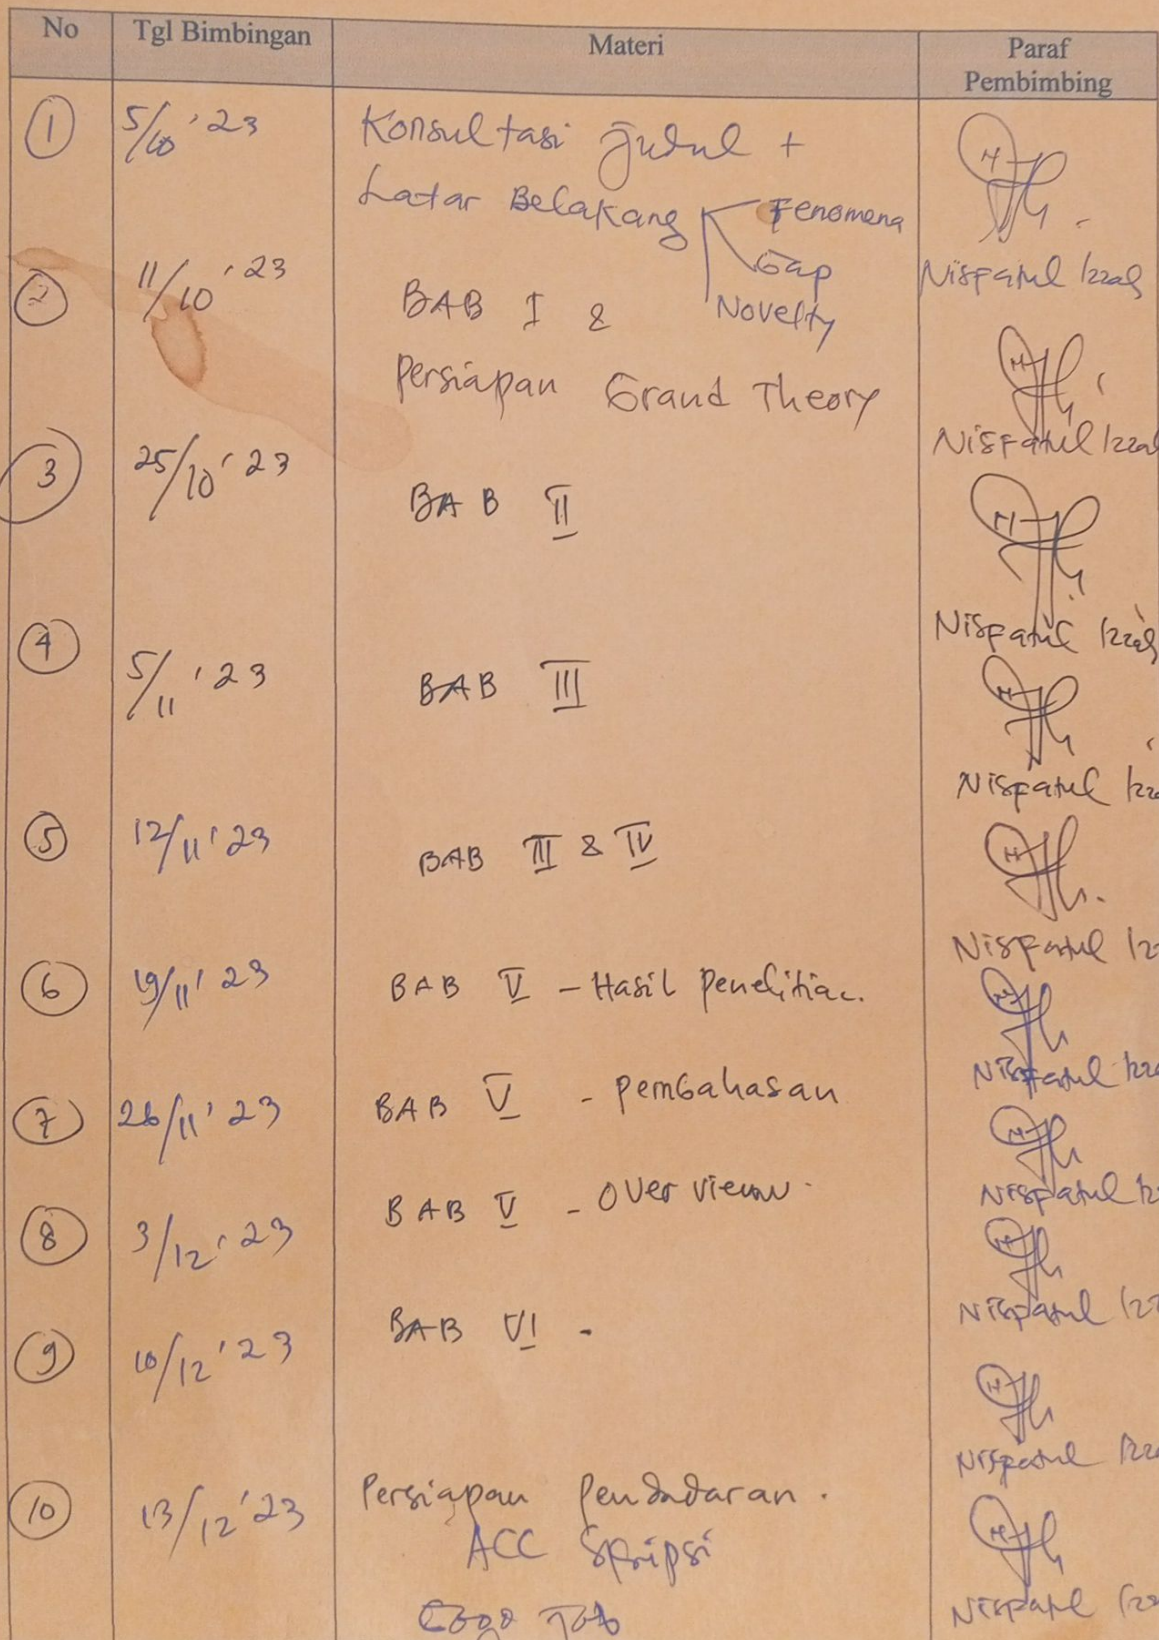 No Tgl Bimbingan Materi Paraf Pembimbing
1 5/10 '23 Konsultasi Judul +
Latar Belakang Fenomena
Gap
Novelty
Nisfatul Izzah
2 11/10 '23 BAB I &
Persiapan Grand Theory
Nisfatul Izzah
3 25/10 '23 BAB II
Nisfatul Izzah
4 5/11 '23 BAB III
Nisfatul
5 12/11 '23 BAB III & IV
Nisfatul
6 19/11 '23 BAB V - Hasil Penelitian.
Nisfatul
7 26/11 '23 BAB V - Pembahasan
Nisfatul
8 3/12 '23 BAB V - Over view
Nisfatul
9 10/12 '23 BAB VI -
Nisfatul
10 13/12 '23 Persiapan Pendadaran.
ACC Skripsi
Nisfatul